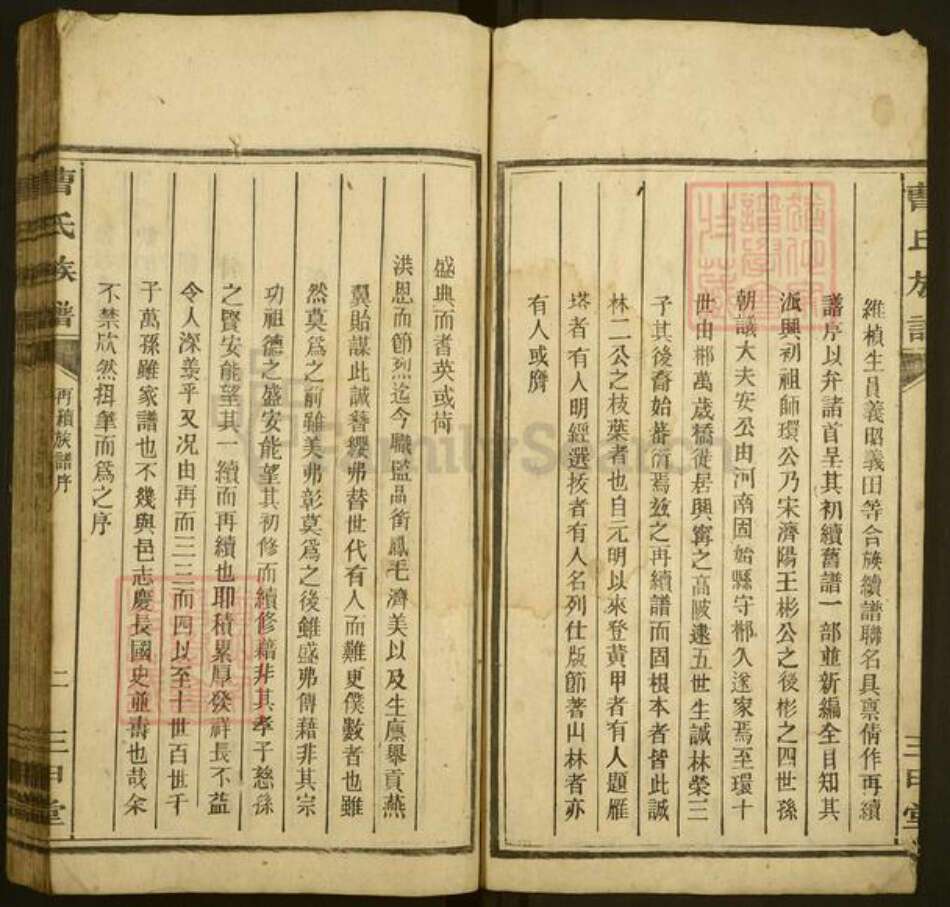 維楨生員義昭義田等合族續譜聯名具禀倩作再續
譜序以弁諸首呈其初續舊譜一部並新編全目知其
派興初祖師環公乃宋濟陽王彬公之後彬之四世孫
朝議大夫安公由河南固始縣守郴久遂家焉至環十
世由郴萬歲橋徙居興寧之高陂逮五世生誠林榮三
子其後裔始蕃衍焉兹之再續譜而固根本者皆此誠
林二公之枝葉者也自元明以來登黃甲者有人題雁
塔者有人明經選拔者有人名列仕版節著山林者亦
有人或膺
盛典而耆英或荷
洪恩而節烈迄今職監品銜鳳毛濟美以及生廩舉貢燕
翼貽謀此誠簪纓弗替世代有人而難更僕數者也雖
然莫爲之前雖美弗彰莫爲之後雖盛弗傳藉非其宗
功祖德之盛安能望其初修而續修藉非其孝子慈孫
之賢安能望其一續而再續也耶積累厚發祥長不益
令人深羨乎又况由再而三三而四以至十世百世千
子萬孫雖家譜也不幾與邑志慶長國史並壽也哉余
不禁欣然揖筆而爲之序
曹氏族譜
再續族譜序
二
三甲堂
曹氏族譜
三甲堂
FamilySearch